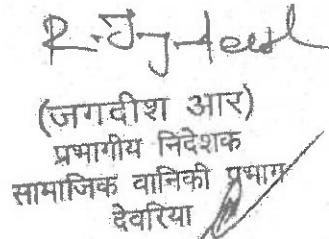 (जगदीश आर)
प्रभागीय निदेशक
सामाजिक वानिकी प्रभाग
देवरिया